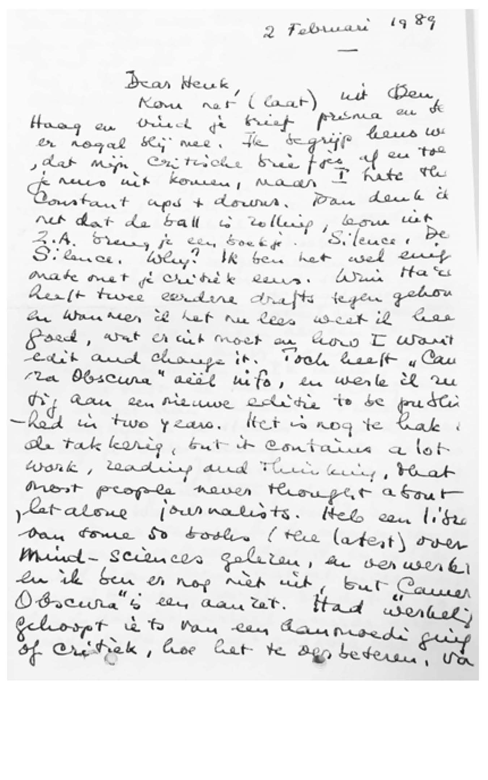 2 Februari 1989
Dear Henk,
Kom net (laat) uit Den
Haag en vind je brief prisma en
er nogal blij mee. Ik begrijp heus
, dat mijn critische briefjes af en toe
je neus uit komen, maar I hate the
Constant ups + downs. Dan denk ik
net dat de ball is rolling, kom uit
Z.A. breng je een boekje. Silence. De
Silence. Why? Ik ben het wel enig
mate met je critiek eens. Wim
heeft twee eerdere drafts tegen gehou
en wanneer ik het nu lees weet ik hee
goed, wat er uit moet en how I want
edit and change it. Toch heeft "Cam
ra Obscura" veel info, en werk ik ru
tig aan een nieuwe editie to be publis
-hed in two years. Het is nog te hak
de takkerig, but it contains a lot
work, reading and thinking, that
most people never thought about
, let alone journalists. Heb een
van some 50 books (the latest) over
Mind-sciences gelezen, en verwerkt
en ik ben er nog niet uit, but "Camer
Obscura" is een aanzet. Had werkelij
gehoopt iets van een aanmoediging
of critiek, hoe het te verbeteren, va